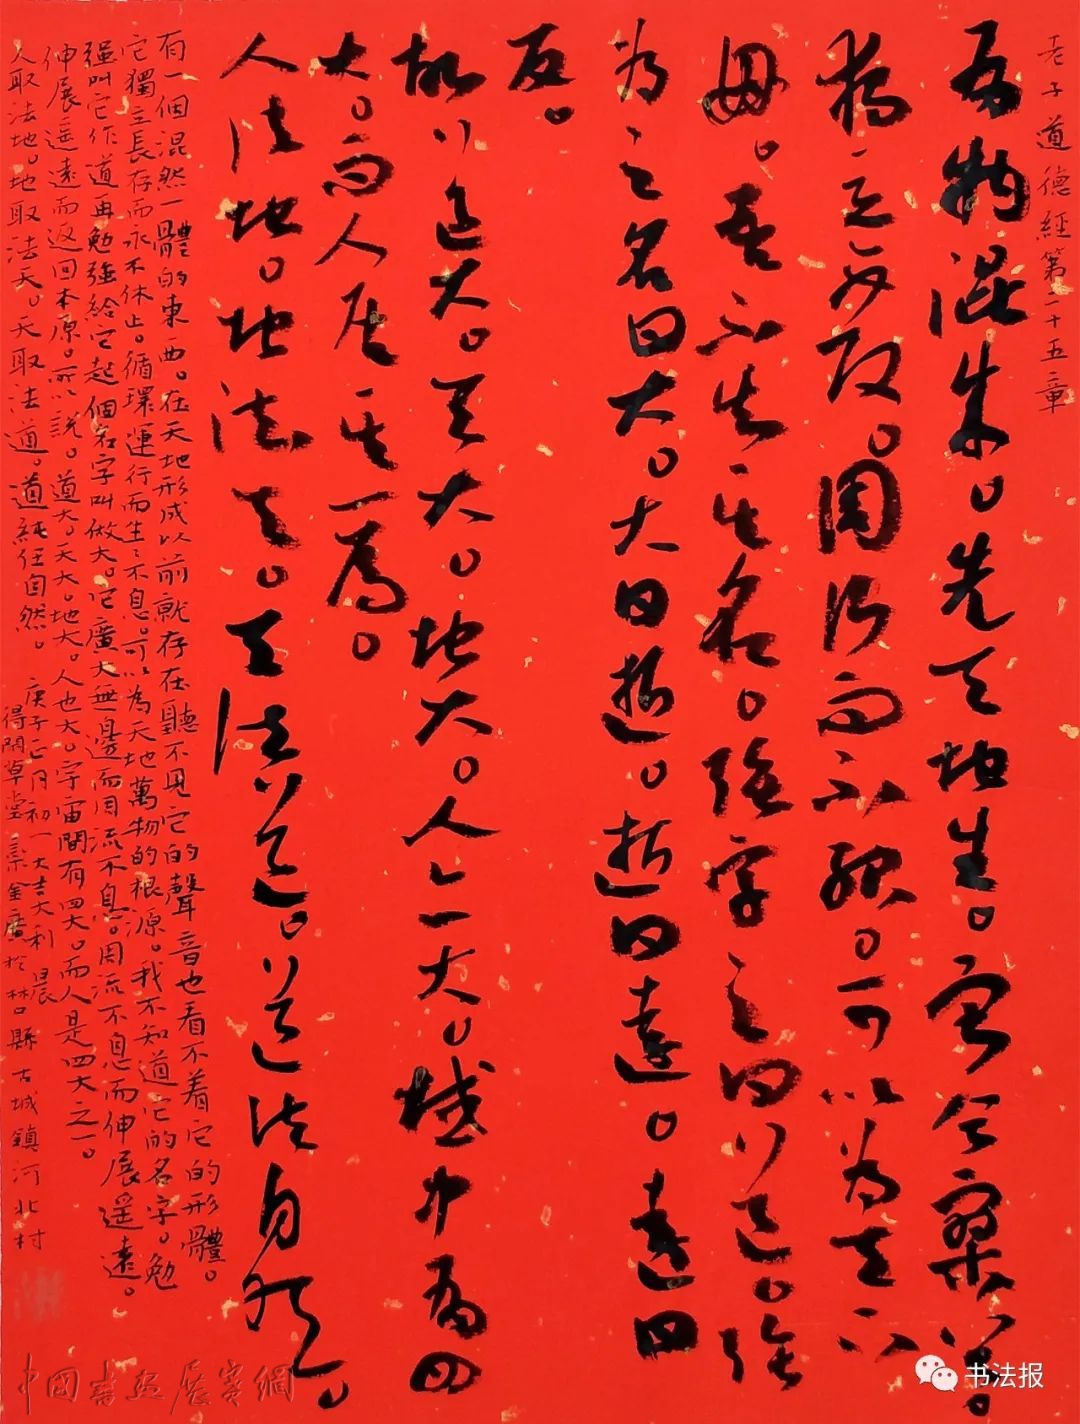 老子道德經第二十五章
有物混成。先天地生。寂兮寥兮。
獨立不改。周行而不殆。可以為天下
母。吾不知其名。強字之曰道。強
為之名曰大。大曰逝。逝曰遠。遠曰
反。
故道大。天大。地大。人亦大。域中有四
大。而人居其一焉。
人法地。地法天。天法道。道法自然。
有一個混然一體的東西。在天地形成以前就存在聽不見它的聲音也看不着它的形體。
它獨立長存而永不休止。循環運行而生〻不息。可以為天地萬物的根源。我不知道它的名字。勉
強叫它作道再勉強給它起個名字叫做大。它廣大無邊而周流不息。周流不息而伸展遙遠。
伸展遙遠而返回本原。所以說。道大。天大。地大。人也大。宇宙間有四大。而人是四大之一。
人取法地。地取法天。天取法道。道純任自然。庚子正月初一大吉大利晨
得閑草堂 金於林口縣古城鎮河北村
中國書畫展賽網
书法报